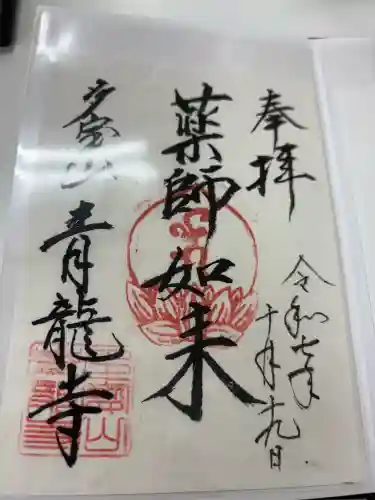 奉拝
令和七年
十月十九日
薬師如来
多宝山
青龍寺